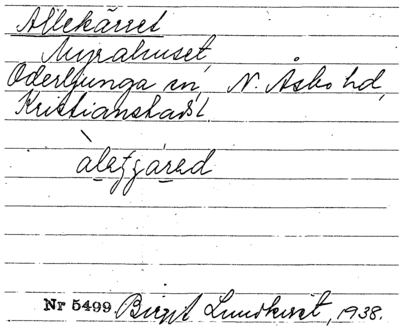 Allekärret
Myrahuset,
Oderljunga sn, N. Åsbo hd,
Kristianstads l
Nr 5499 Birgit Lundkvist, 1938.